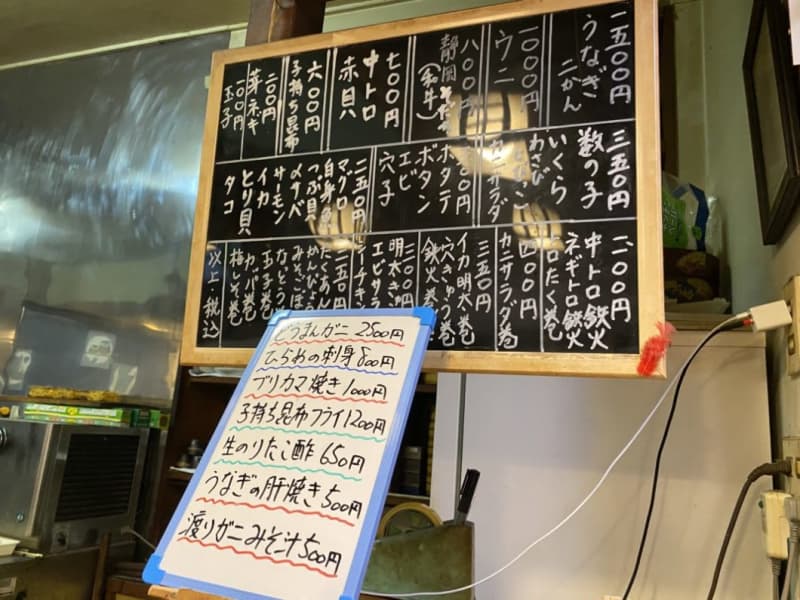 一五〇〇円
うなぎ
二かん
一〇〇〇円
ウニ
八〇〇円
静岡
(和牛)
七〇〇円
中トロ
赤貝
六〇〇円
子持ち昆布
二〇〇円
芽ネギ
一〇〇円
玉子
三五〇円
数の子
いくら
わさび
カニサラダ
ホタテ
ボタン
エビ
穴子
二五〇円
マグロ
白身魚
つぶ貝
〆サバ
サーモン
イカ
とり貝
タコ
中トロ鉄火
ネギトロ鉄火
トロたく巻
カニサラダ巻
三五〇円
イカ明太巻
穴きゅう巻
鉄火巻
三〇〇円
明太き
エビサラ
シーチキ
二五〇円
たくあん
かんぴょ
みそごぼ
なっとう
玉子巻
カッパ巻
梅しそ巻
以上税込
どうまんガニ 2500円
ひらめの刺身 800円
ブリカマ焼き 1000円
子持ち昆布フライ 1200円
生のりたこ酢 650円
うなぎの肝焼き 500円
渡りガニみそ汁 500円